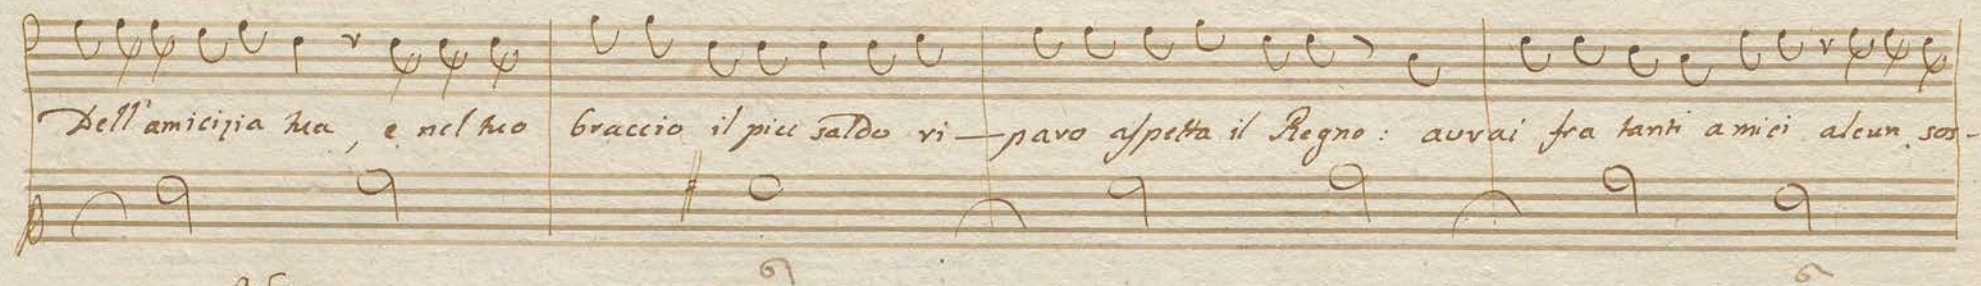 Dell'amicizia tua, e nel tuo braccio il piu saldo ri—paro aspetta il Regno: avrai fra tanti amici alcun sos-
6 6